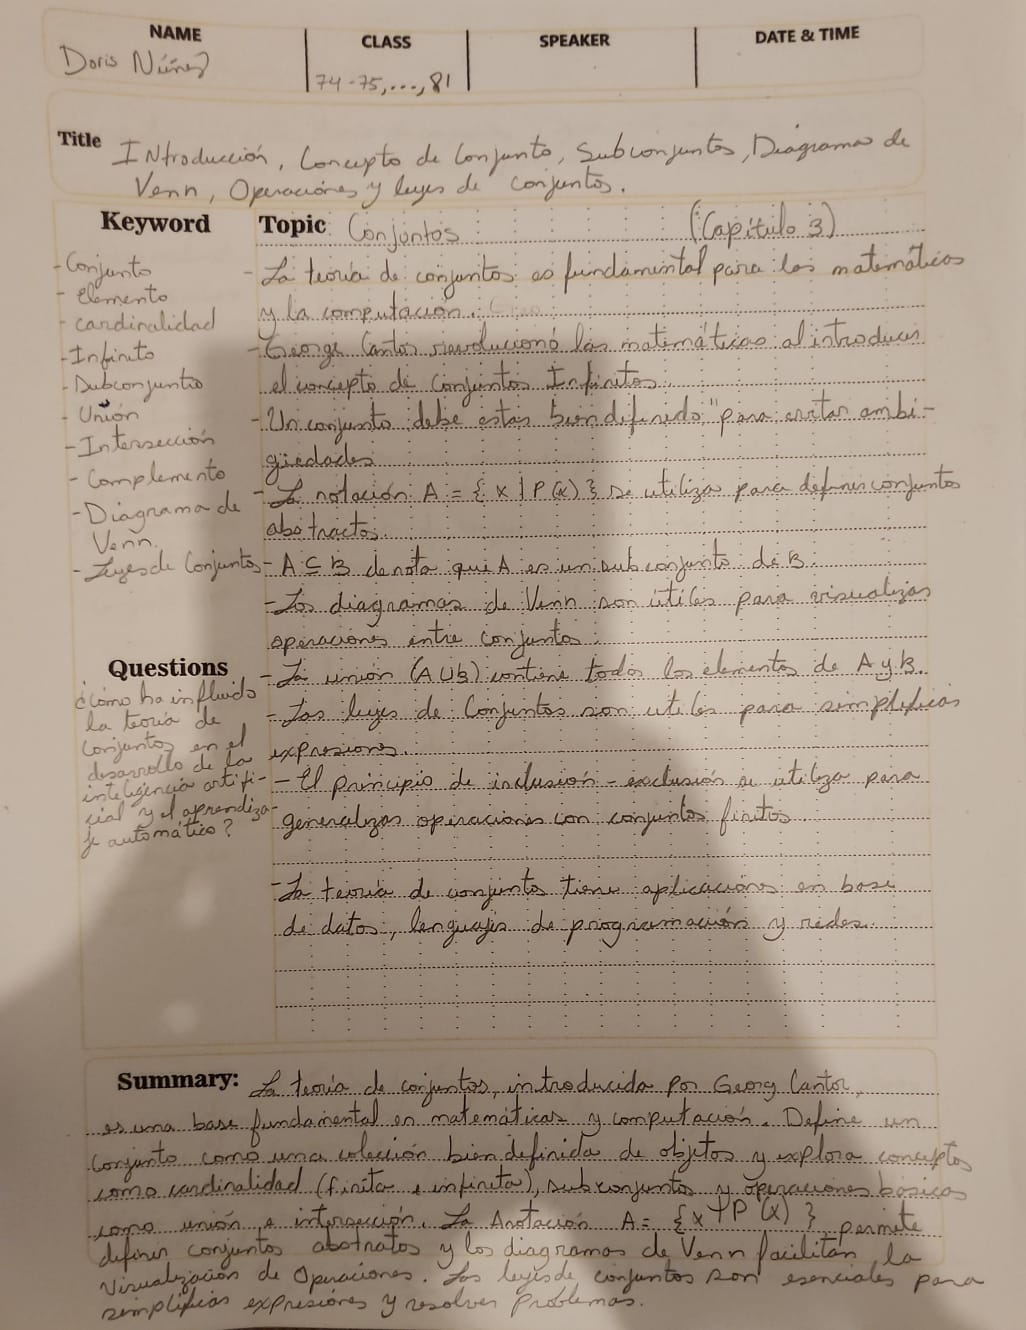 NAME
CLASS
SPEAKER
DATE & TIME
Doris Núñez
74-75,...,81
Title
Introducción, Concepto de Conjunto, Subconjuntos, Diagrama de
Venn, Operaciones y leyes de conjuntos.
Keyword
- Conjunto
- elemento
- cardinalidad
- Infinito
- Subconjunto
- Unión
- Intersección
- Complemento
- Diagrama de
Venn.
- Leyes de Conjuntos
Questions
¿Cómo ha influido
la teoría de
conjuntos en el
desarrollo de la
inteligencia artifi-
cial y el aprendiza-
je automático?
Topic Conjuntos (Capítulo 3)
- La teoría de conjuntos es fundamental para las matemáticas
y la computación.
- George Cantor revolucionó las matemáticas al introducir
el concepto de Conjuntos Infinitos.
- Un conjunto debe estar bien definido" para evitar ambi-
güedades
- La notación A = { x | P(x) } se utiliza para definir conjuntos
abstractos.
- A ⊆ B denota que A es un subconjunto de B.
- Los diagramas de Venn son útiles para visualizar
operaciones entre conjuntos.
- La unión (A∪b) contiene todos los elementos de A y B.
- Las leyes de Conjuntos son utiles para simplificar
expresiones.
- El principio de inclusión-exclusión se utiliza para
generalizar operaciones con conjuntos finitos
- La teoría de conjuntos tiene aplicaciones en base
de datos, lenguajes de programación y redes.
Summary: La teoría de conjuntos, introducida por Georg Cantor,
es una base fundamental en matemáticas y computación. Define un
conjunto como una colección bien definida de objetos y explora conceptos
como cardinalidad (finita e infinita), subconjuntos y operaciones básicas
como unión e intersección. La Anotación A = { x | P (x) } permite
definir conjuntos abstratos y los diagramas de Venn facilitan la
visualización de Operaciones. Las leyes de conjuntos son esenciales para
simplificar expresiones y resolver Problemas.